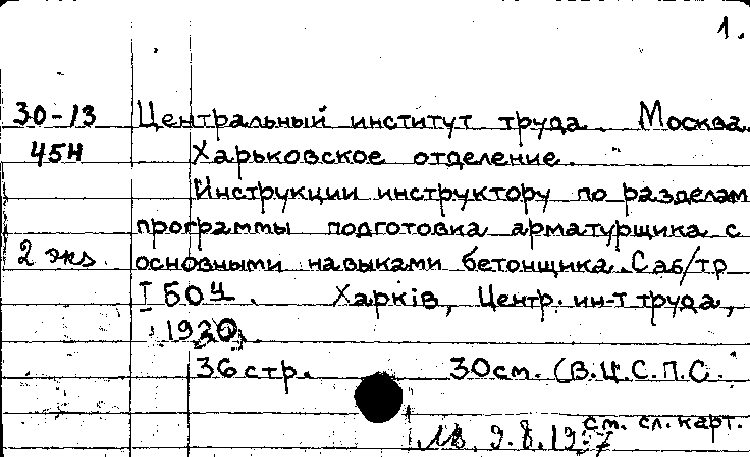 1.
30-13 Центральный институт труда. Москва.
45Н Харьковское отделение.
Инструкции инструктору по разделам
программы подготовка арматурщика с
2 экз. основными навыками бетонщика. Саб/тр
I 504. Харкiв, Центр. ин-т труда,
1930
36 стр. 30см. (В.Ц.С.П.С.
см. сл. карт.
9.8.1957